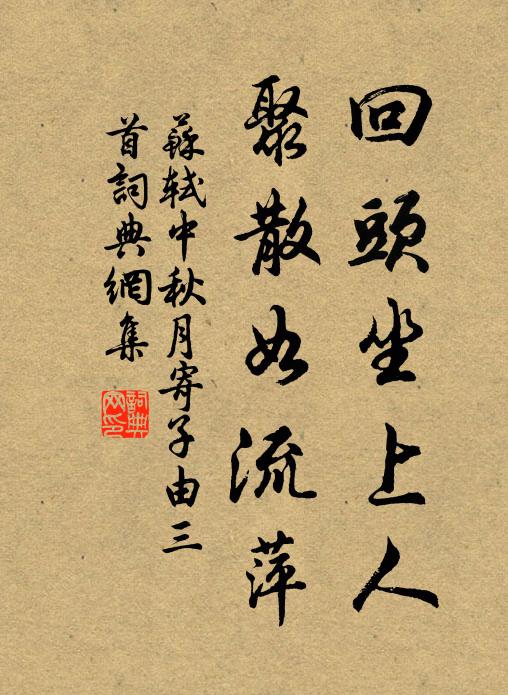 回頭坐上人
聚散如流萍
蘇軾中秋月寄子由三
首詞典網集
詞典
网印